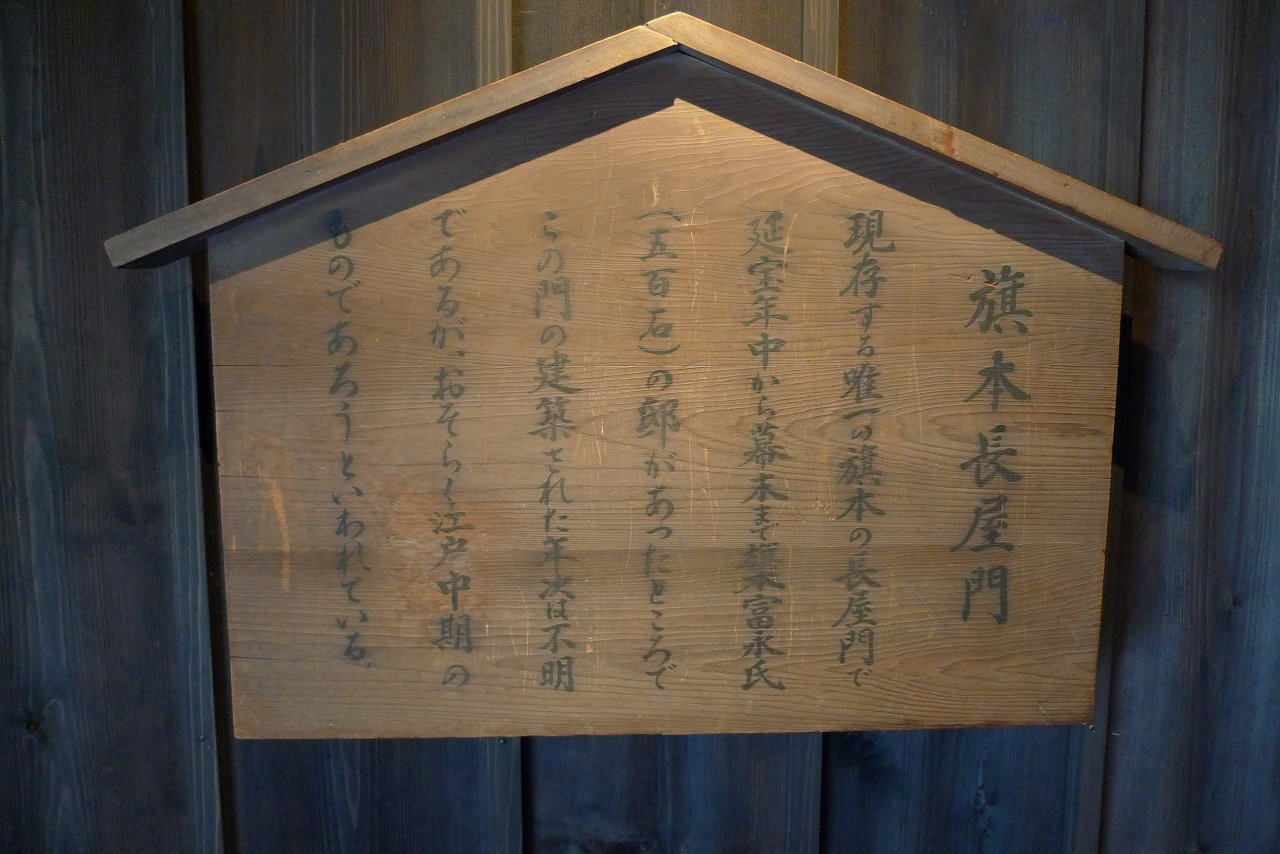 旗本長屋門
現存する唯一の旗本の長屋門で
延宝年中から幕末まで旗本富永氏
（五百石）の邸があったところで
この門の建築された年次は不明
であるが、おそらく江戸中期の
ものであろうといわれている。